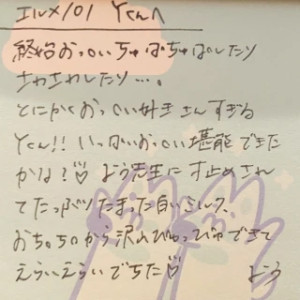 エルメ/01 Yくんへ
終始おっぱいちゅぱちゅぱしたり
さわさわしたり…。
とにかくおっぱい好きさんすぎる
Yくん!! いっぱいおっぱい堪能できた
かな?♡ よう先生に寸止めされ
てたっぷりたまった白いミルク、
おちぉちぉから沢山びゅっびゅできて
えらいえらいでちた♡ よう